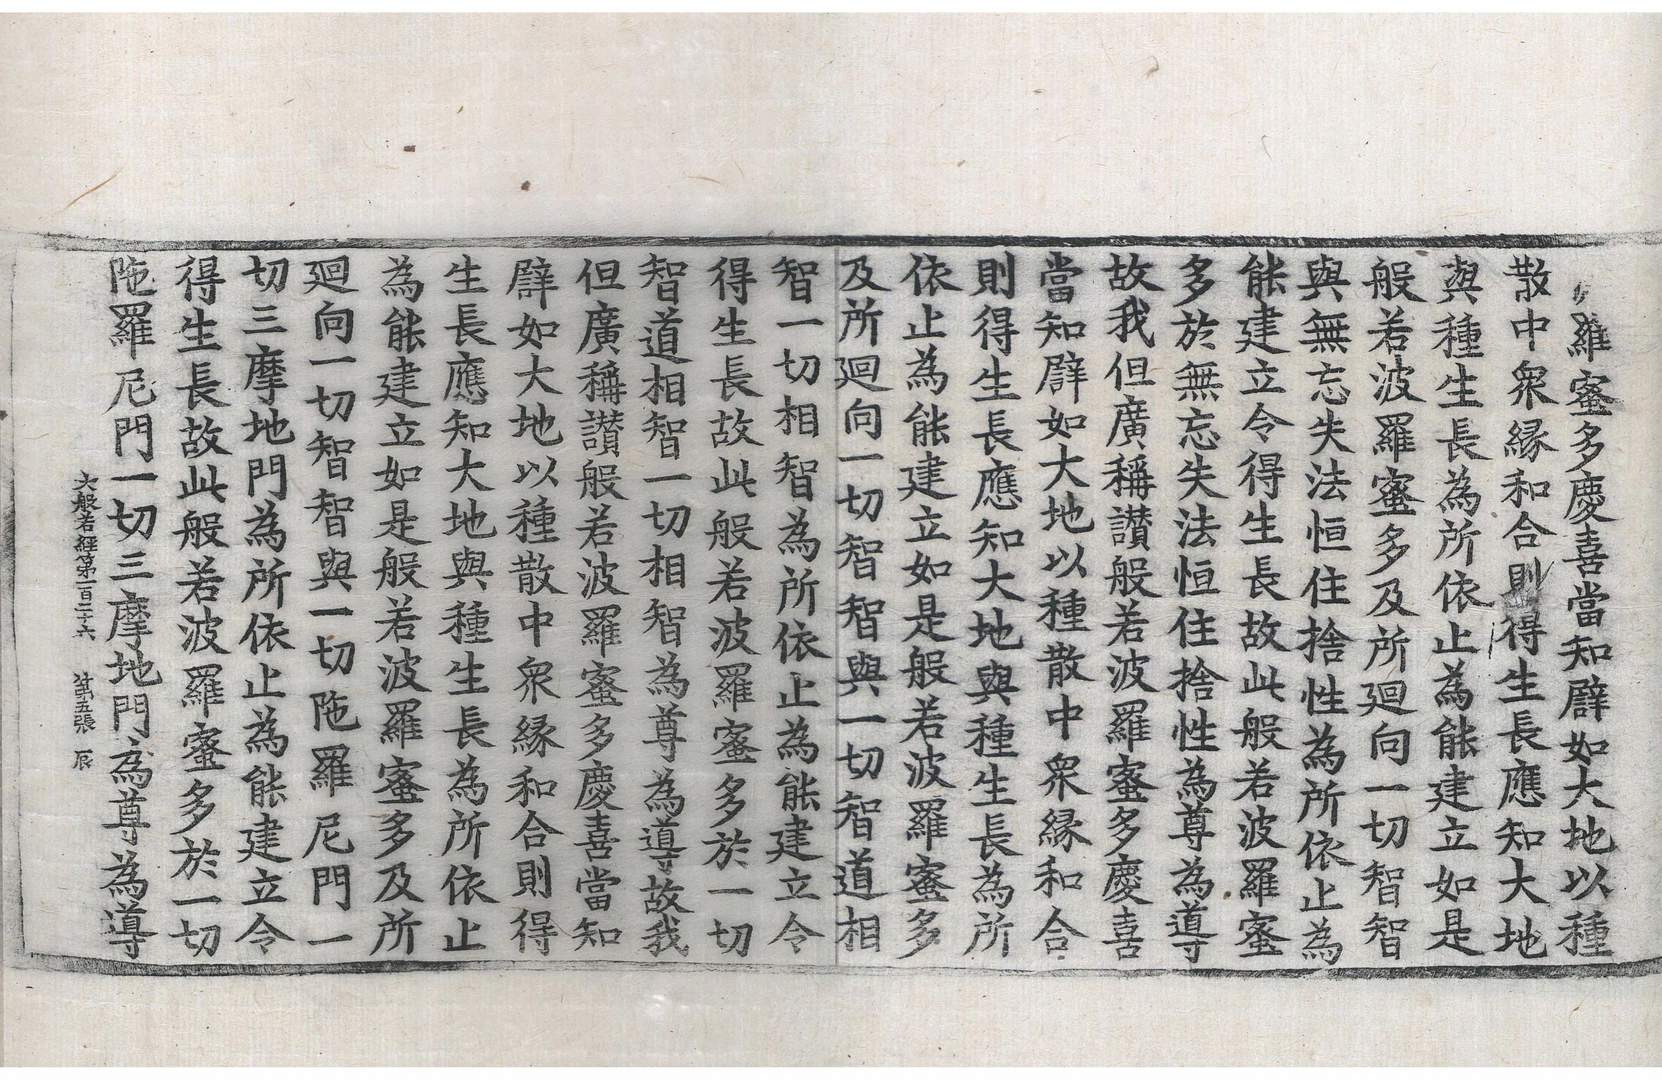 羅蜜多慶喜當知譬如大地以種
散中衆緣和合則得生長應知大地
與種生長為所依止為能建立如是
般若波羅蜜多及所迴向一切智智
與無忘失法恒住捨性為所依止為
能建立令得生長故此般若波羅蜜
多於無忘失法恒住捨性為尊為導
故我但廣稱讚般若波羅蜜多慶喜
當知譬如大地以種散中衆緣和合
則得生長應知大地與種生長為所
依止為能建立如是般若波羅蜜多
及所迴向一切智智與一切智道相
智一切相智為所依止為能建立令
得生長故此般若波羅蜜多於一切
智道相智一切相智為尊為導故我
但廣稱讚般若波羅蜜多慶喜當知
譬如大地以種散中衆緣和合則得
生長應知大地與種生長為所依止
為能建立如是般若波羅蜜多及所
迴向一切智智與一切陁羅尼門一
切三摩地門為所依止為能建立令
得生長故此般若波羅蜜多於一切
陁羅尼門一切三摩地門為尊為導
大般若經第一百二十六 第五張 辰